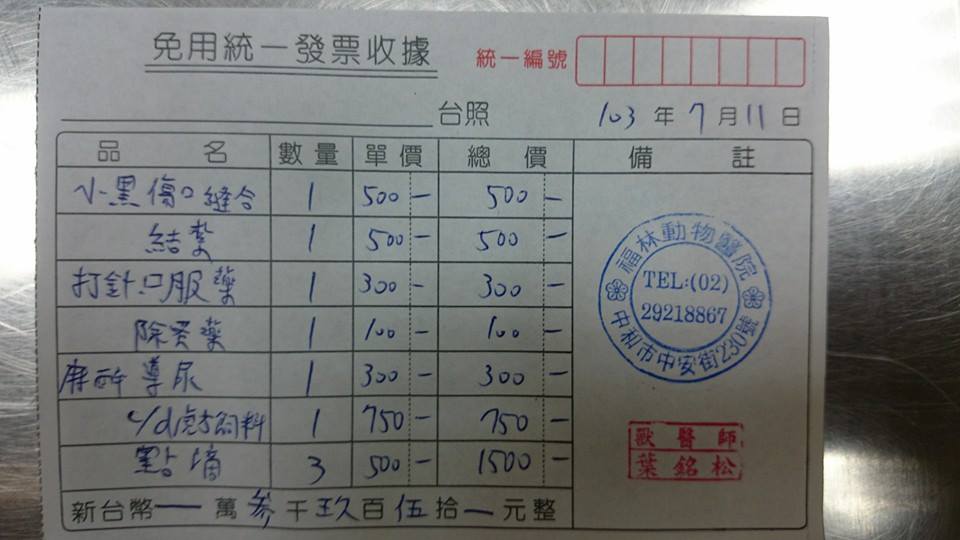 免用統一發票收據
統一編號
台照 103年7月11日
品名 數量 單價 總價 備註
小黑傷口縫合 1 500- 500-
結紮 1 500- 500-
打針.口服藥 1 300- 300-
除蚤藥 1 100- 100-
麻醉導尿 1 300- 300-
c/d處方飼料 1 750- 750-
點滴 3 500- 1500-
新台幣一萬參千玖百伍拾一元整
福林動物醫院
TEL:(02)
29218867
中和市中安街230號
獸醫師
葉銘松